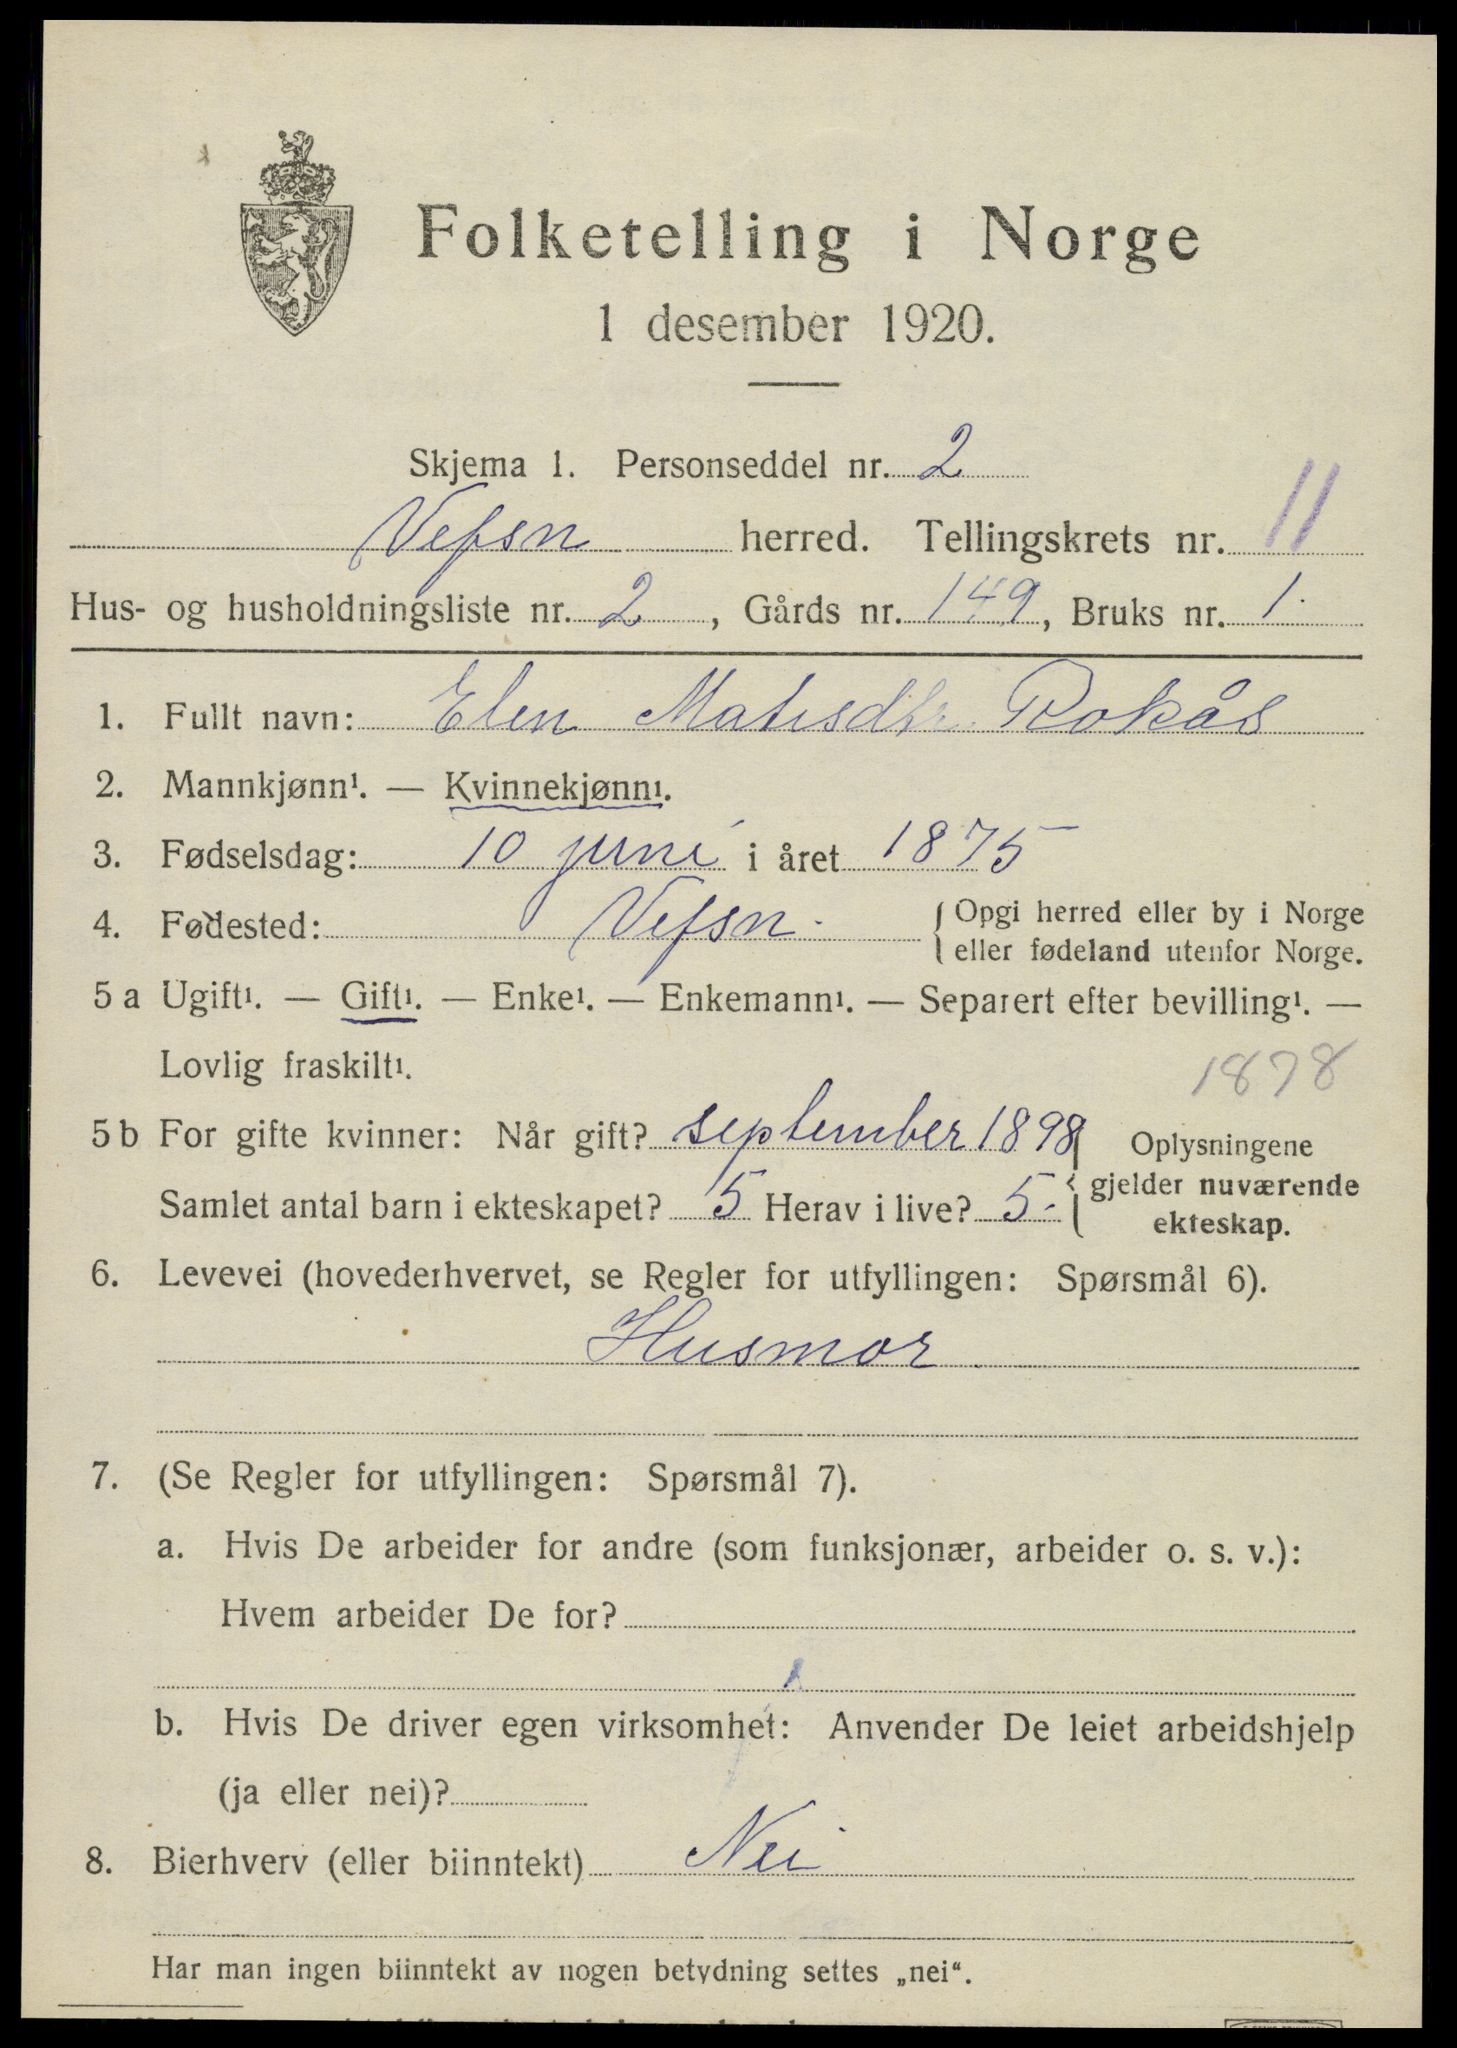 Folketelling i Norge
1 desember 1920.
Skjema 1. Personseddel nr. 2
Vefsn herred. Tellingskrets nr. 11
Hus- og husholdningsliste nr. 2, Gårds nr. 149, Bruks nr. 1.
1. Fullt navn: Elen Matisdtr. Rokås
2. Mannkjønn¹. — Kvinnekjønn¹.
3. Fødselsdag: 10 juni i året 1875
4. Fødested: Vefsn. { Opgi herred eller by i Norge
eller fødeland utenfor Norge.
5 a Ugift¹. — Gift¹. — Enke¹. — Enkemann¹. — Separert efter bevilling¹. —
Lovlig fraskilt¹.
1878
5 b For gifte kvinner: Når gift? september 1898 { Oplysningene
gjelder nuværende
ekteskap.
Samlet antal barn i ekteskapet? 5 Herav i live? 5.
6. Levevei (hovederhvervet, se Regler for utfyllingen: Spørsmål 6).
Husmor.
7. (Se Regler for utfyllingen: Spørsmål 7).
a. Hvis De arbeider for andre (som funksjonær, arbeider o. s. v.):
Hvem arbeider De for?
b. Hvis De driver egen virksomhet: Anvender De leiet arbeidshjelp
(ja eller nei)?
8. Bierhverv (eller biinntekt) Nei
Har man ingen biinntekt av nogen betydning settes „nei“.